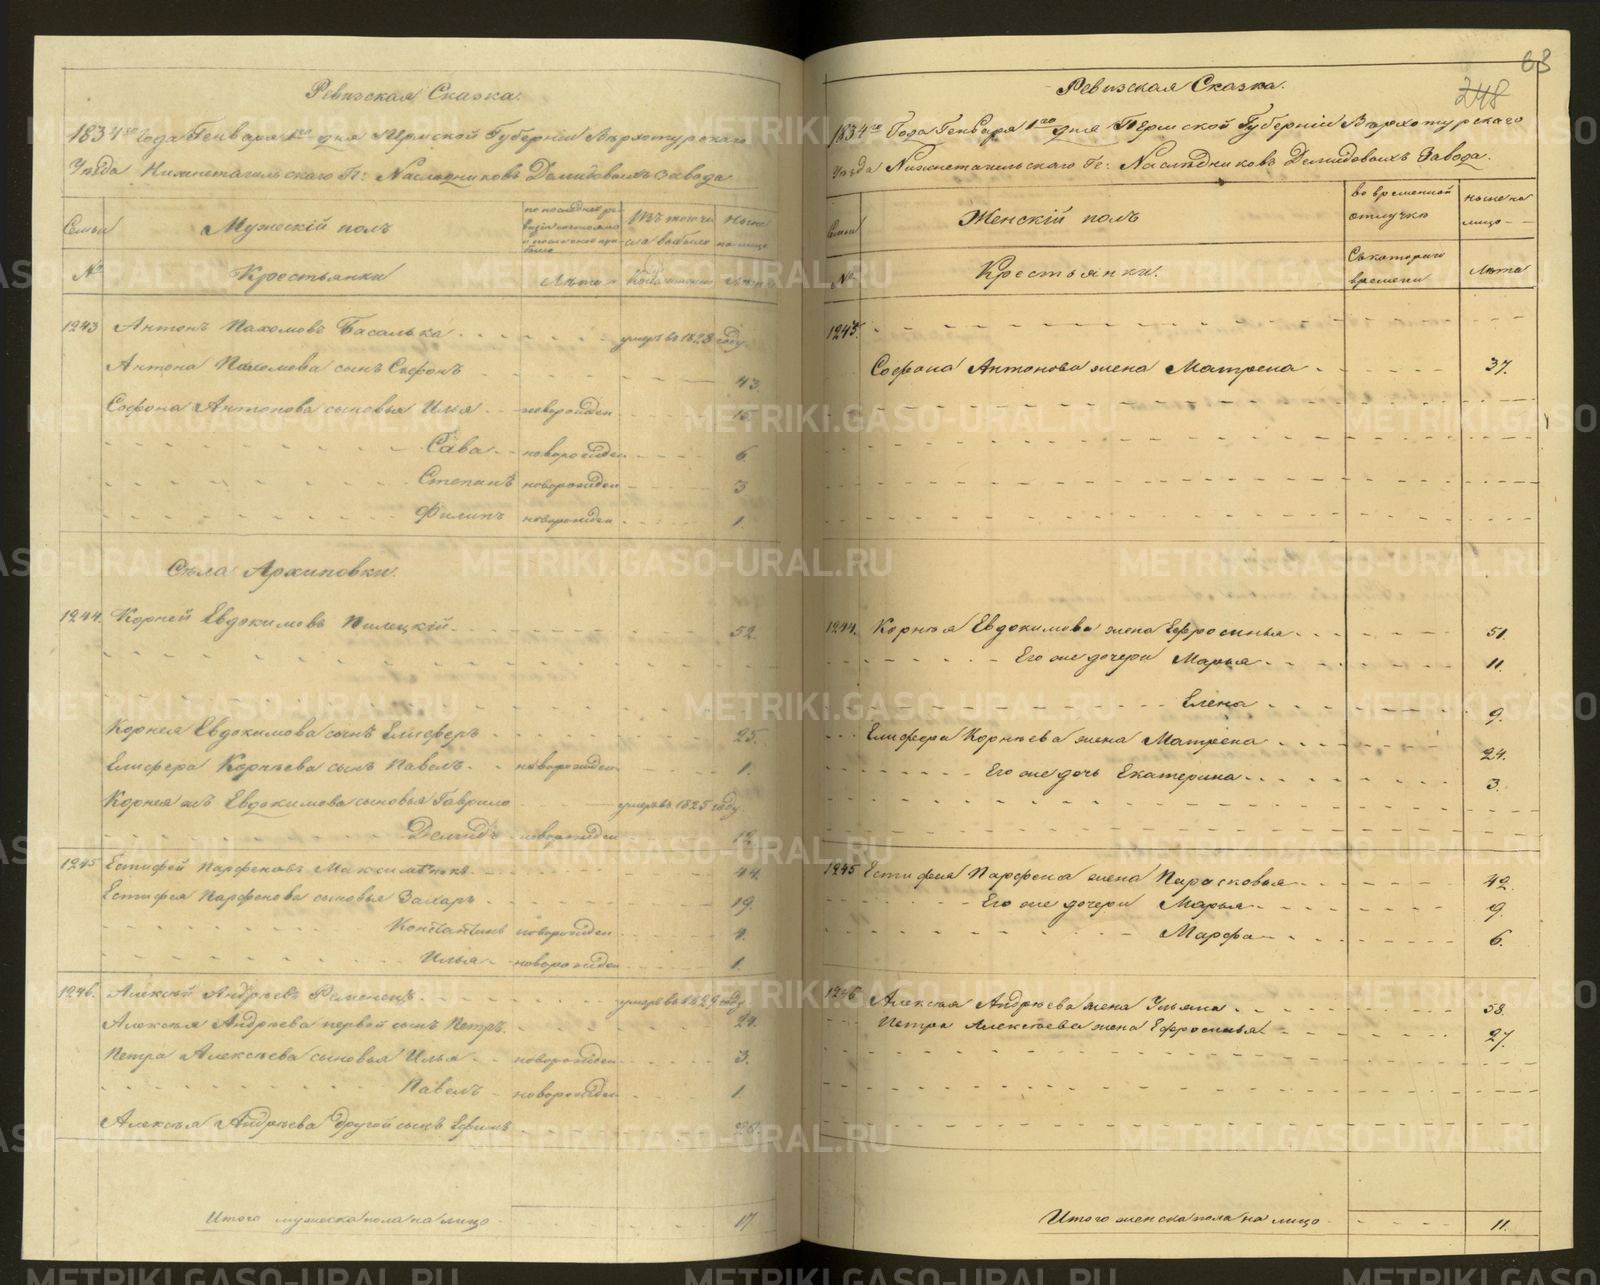 Ревизская Сказка.
1834го Года Генваря 1го дня Пермской Губернии Верхотурскаго
Уезда Нижнетагильскаго Гг: Наследниковъ Демидовыхъ завода
Семьи
Мужескiй полъ
по последней ре-
визiи состояло
и после оной при-
было
Изъ того чи-
сла выбыло
ныне
на лицо
№
Крестьянки
Лета
Когда именно
Лета
1243 Антонъ Пахомовъ Басалыка умеръ въ 1823 году
Антона Пахомова сынъ Софонъ 43.
Софона Антонова сыновья Илья новорожден 15
Сава новорожден 6
Степанъ новорожден 3
Филипъ новорожден 1.
Села Архиповки.
1244 Корней Евдокимовъ Пилецкiй 52.
Корнея Евдокимова сынъ Елисферъ 25.
Елисфера Корнеева сынъ Павелъ новорожден 1.
Корнея жъ Евдокимова сыновья Гаврило умеръ въ 1825 году
Демидъ новорожден 12
1245 Естифей Парфеновъ 44
Естифея Парфенова сыновья Захаръ 19.
Константинъ новорожден
Илья новорожден 1.
1246. Алексей Андреевъ Ременецъ умеръ въ 1829 году
Алексея Андреева первой сынъ Петръ
Петра Алексеева сыновья Илья новорожден 3.
Павелъ новорожден 1
Алексея Андреева другой сынъ Ефимъ
Итого мужеска пола на лицо 17
63
248
Ревизская Сказка.
1834го Года Генваря 1го дня Пермской Губернiи Верхотурскаго
Уезда Нижнетагильскаго Гг: Наследниковъ Демидовыхъ Завода.
Семьи
Женскiй полъ
во временной
отлучке
ныне на
лицо
№
Крестьянки.
Съ котораго
времени
Лета
1243.
Софона Антонова жена Матрена 37.
1244. Корнея Евдокимова жена Ефросинья 51.
Его же дочери Марья 11.
Елена 9.
Елисфера Корнеева жена Матрена 24.
Его же дочь Екатерина 3.
1245 Естифея Парфена жена Парасковья 42.
Его же дочери Марья 9.
Марфа 6.
1246 Алексея Андреева жена Ульяна 58.
Петра Алексеева жена Ефросинья 27.
Итого женска пола на лицо 11.
METRIKI.GASO-URAL.RU